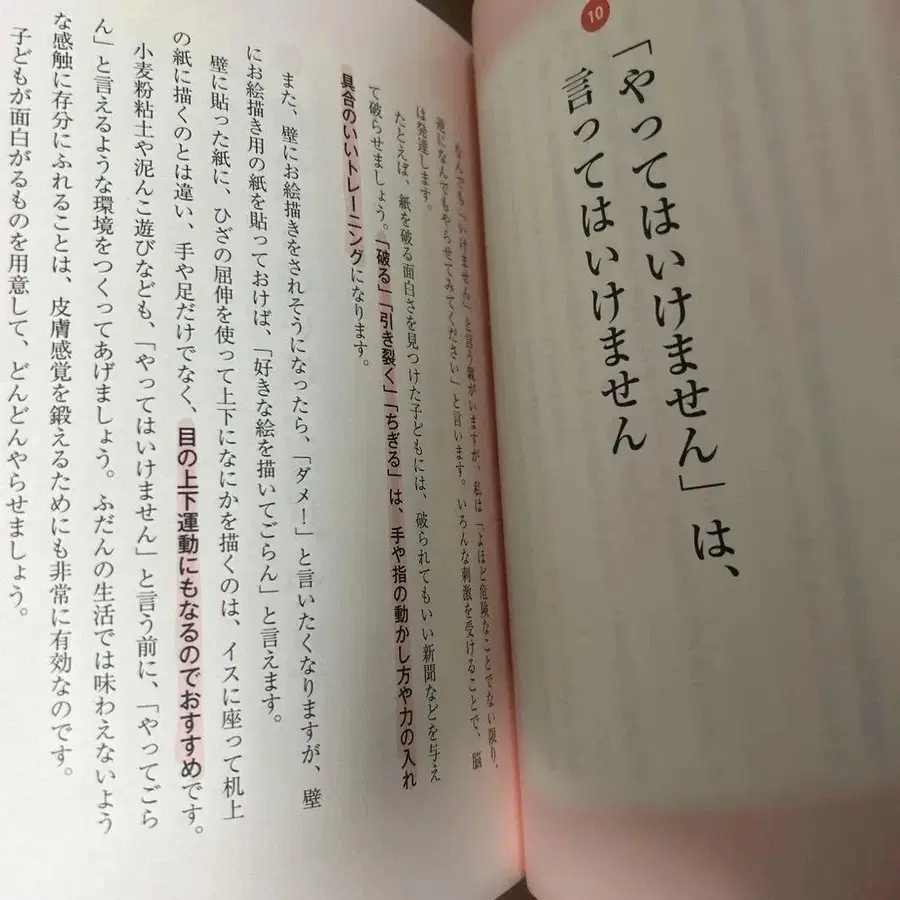 10
「やってはいけません」は、
言ってはいけません
なんでも「いけません」と言う親がいますが、私は「よほど危険なことでない限り、
逆になんでもやらせてみてください」と言います。いろんな刺激を受けることで、脳
は発達します。
たとえば、紙を破る面白さを見つけた子どもには、破られてもいい新聞などを与え
て破らせましょう。「破る」「引き裂く」「ちぎる」は、手や指の動かし方や力の入れ
具合のいいトレーニングになります。
また、壁にお絵描きをされそうになったら、「ダメ！」と言いたくなりますが、壁
にお絵描き用の紙を貼っておけば、「好きな絵を描いてごらん」と言えます。
壁に貼った紙に、ひざの屈伸を使って上下になにかを描くのは、イスに座って机上
の紙に描くのとは違い、手や足だけでなく、目の上下運動にもなるのでおすすめです。
小麦粉粘土や泥んこ遊びなども、「やってはいけません」と言う前に、「やってごら
ん」と言えるような環境をつくってあげましょう。ふだんの生活では味わえないよう
な感触に存分にふれることは、皮膚感覚を鍛えるためにも非常に有効なのです。
子どもが面白がるものを用意して、どんどんやらせましょう。